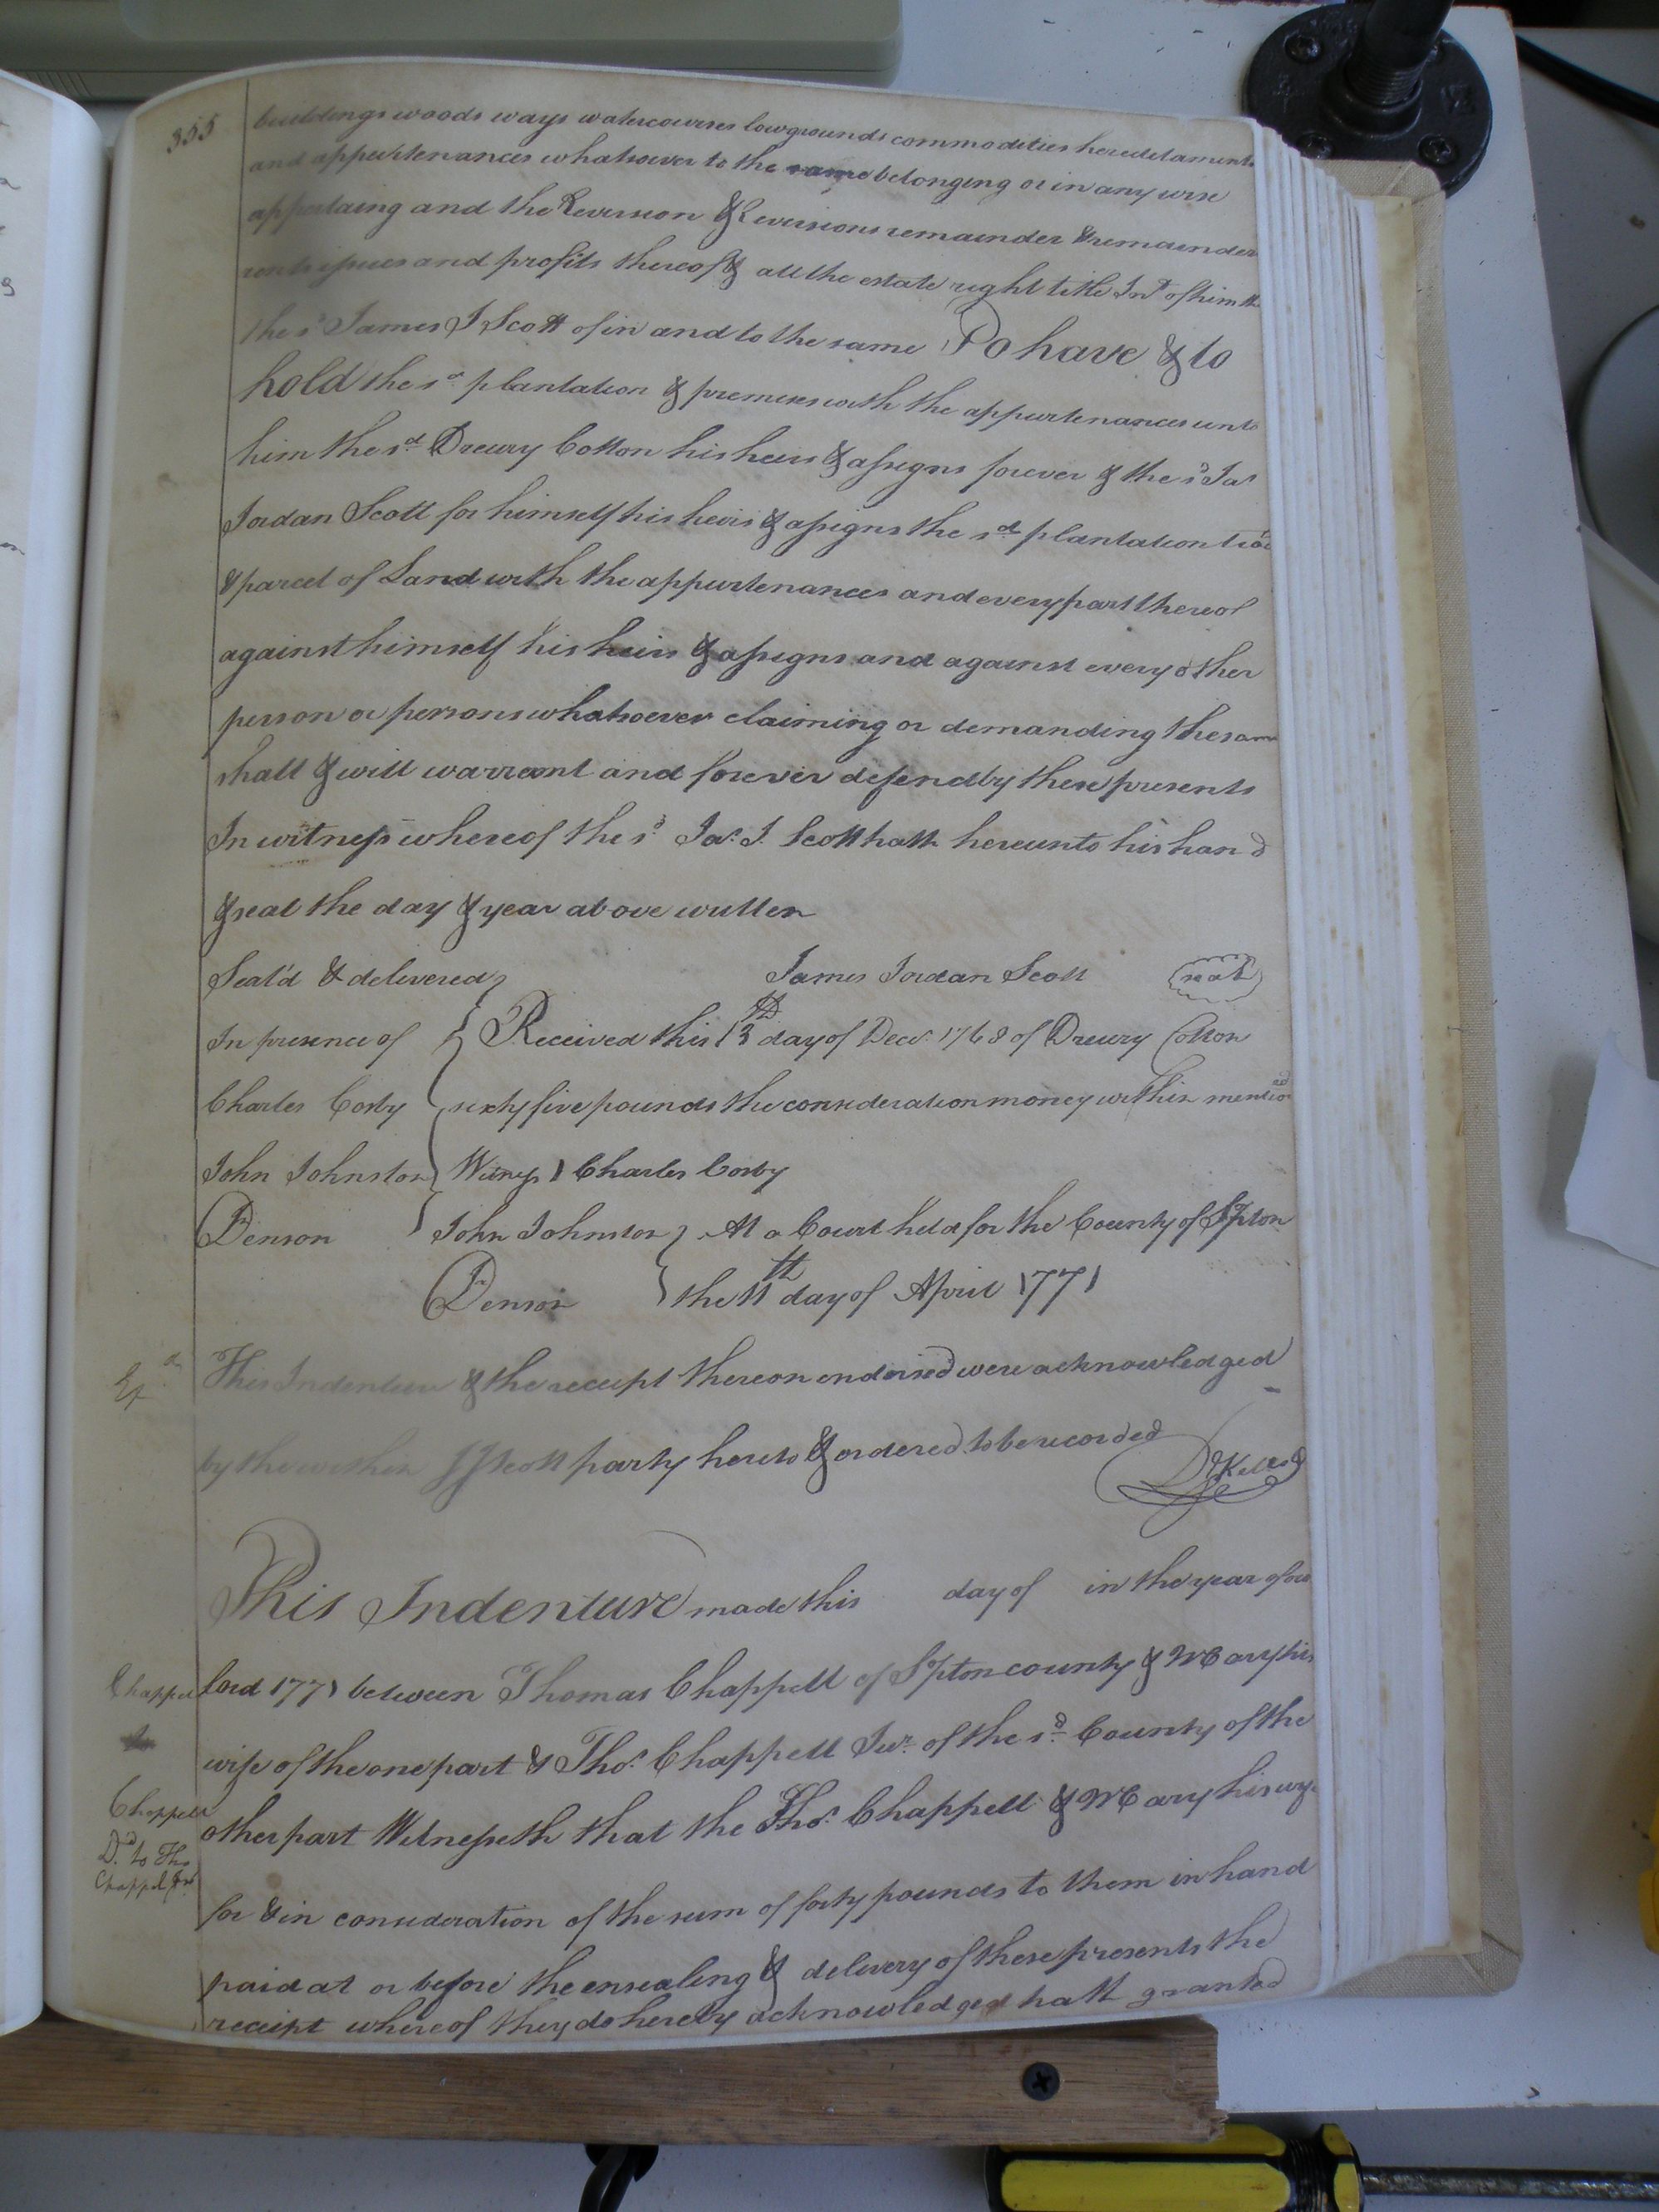 355
buildings woods ways watercourses lowgrounds commodities hereditaments
and appurtenances whatsoever to the same belonging or in any wise
appertaing and the Reversion & Reversions remainder & remainders
rents issues and profits thereof & all the estate right title Int. of him the
the sd James J Scott of in and to the same To have & to
hold the sd plantation & premises with the appurtenances unto
him the sd Drewry Cotton his heirs & assigns forever & the sd Jas
Jordan Scott for himself his heirs & assigns the sd plantation tract
& parcel of Land with the appurtenances and every part thereof
against himself his heirs & assigns and against every other
person or persons whatsoever claiming or demanding the same
shall & will warrant and forever defend by these presents
In witness whereof the sd Jas. J. Scott hath hereunto his hand
& seal the day & year above written
Seal'd & delivered James Jordan Scott seal
In presence of Received this 13th day of Decr. 1768 of Drewry Cotton
Charles Cosby sixty five pounds the consideration money within mentioned
John Johnston Witness Charles Cosby
Jn Denson John Johnston At a Court held for the County of S.hpton
Jn Denson the 11th day of April 1771
Exd This Indenture & the receipt thereon endorsed were acknowledged
by the within J J Scott party hereto & ordered to be recorded
This Indenture made this day of in the year of our
Chappell lord 1771 between Thomas Chappell of S.hpton county & Mary his
to wife of the one part & Thos. Chappell Jur. of the sd. County of the
Chappell other part Witnesseth that the Thos. Chappell & Mary his wife
Dd. to Tho
Chappel Jur
for & in consideration of the sum of forty pounds to them in hand
paid at or before the ensealing & delivery of these presents the
receipt whereof they do hereby acknowledged hath granted